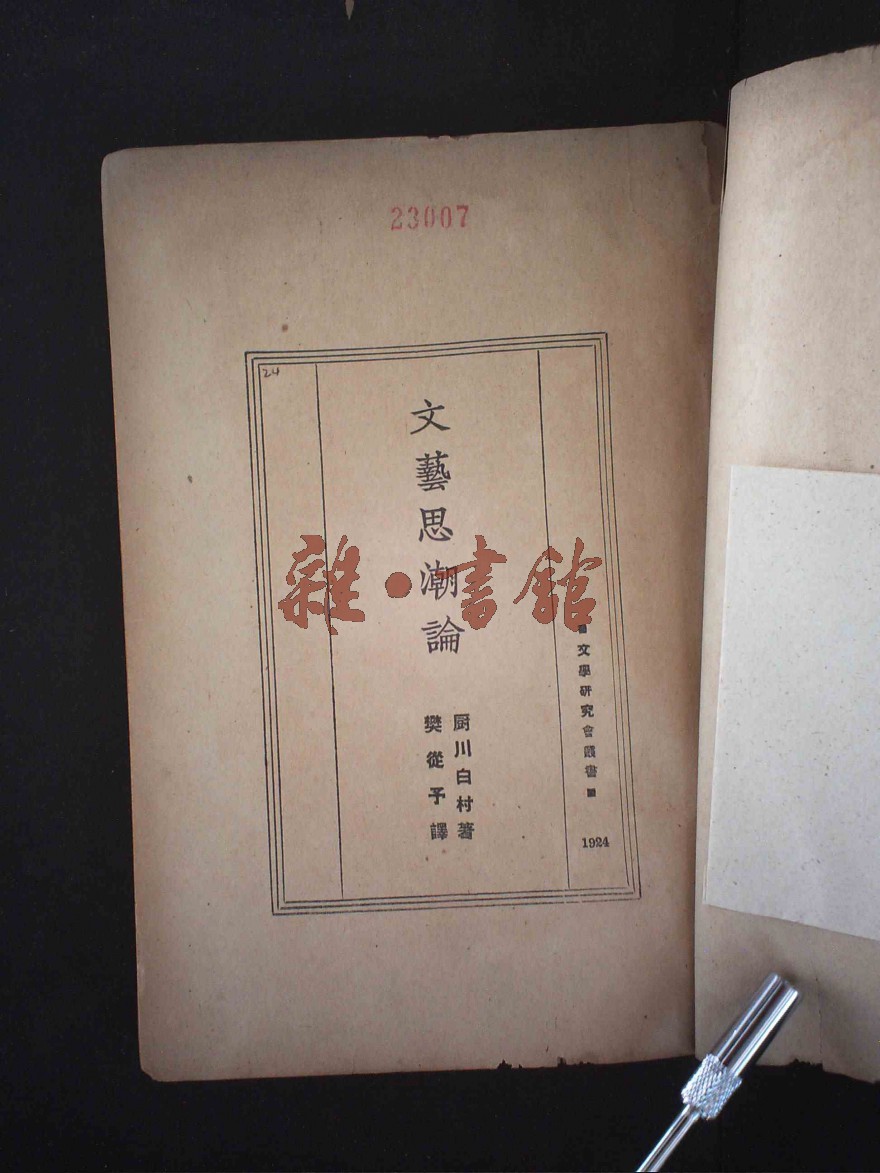 23007
24
文藝思潮論
厨川白村著
樊從予譯
文學研究會叢書
1924
雜·書館